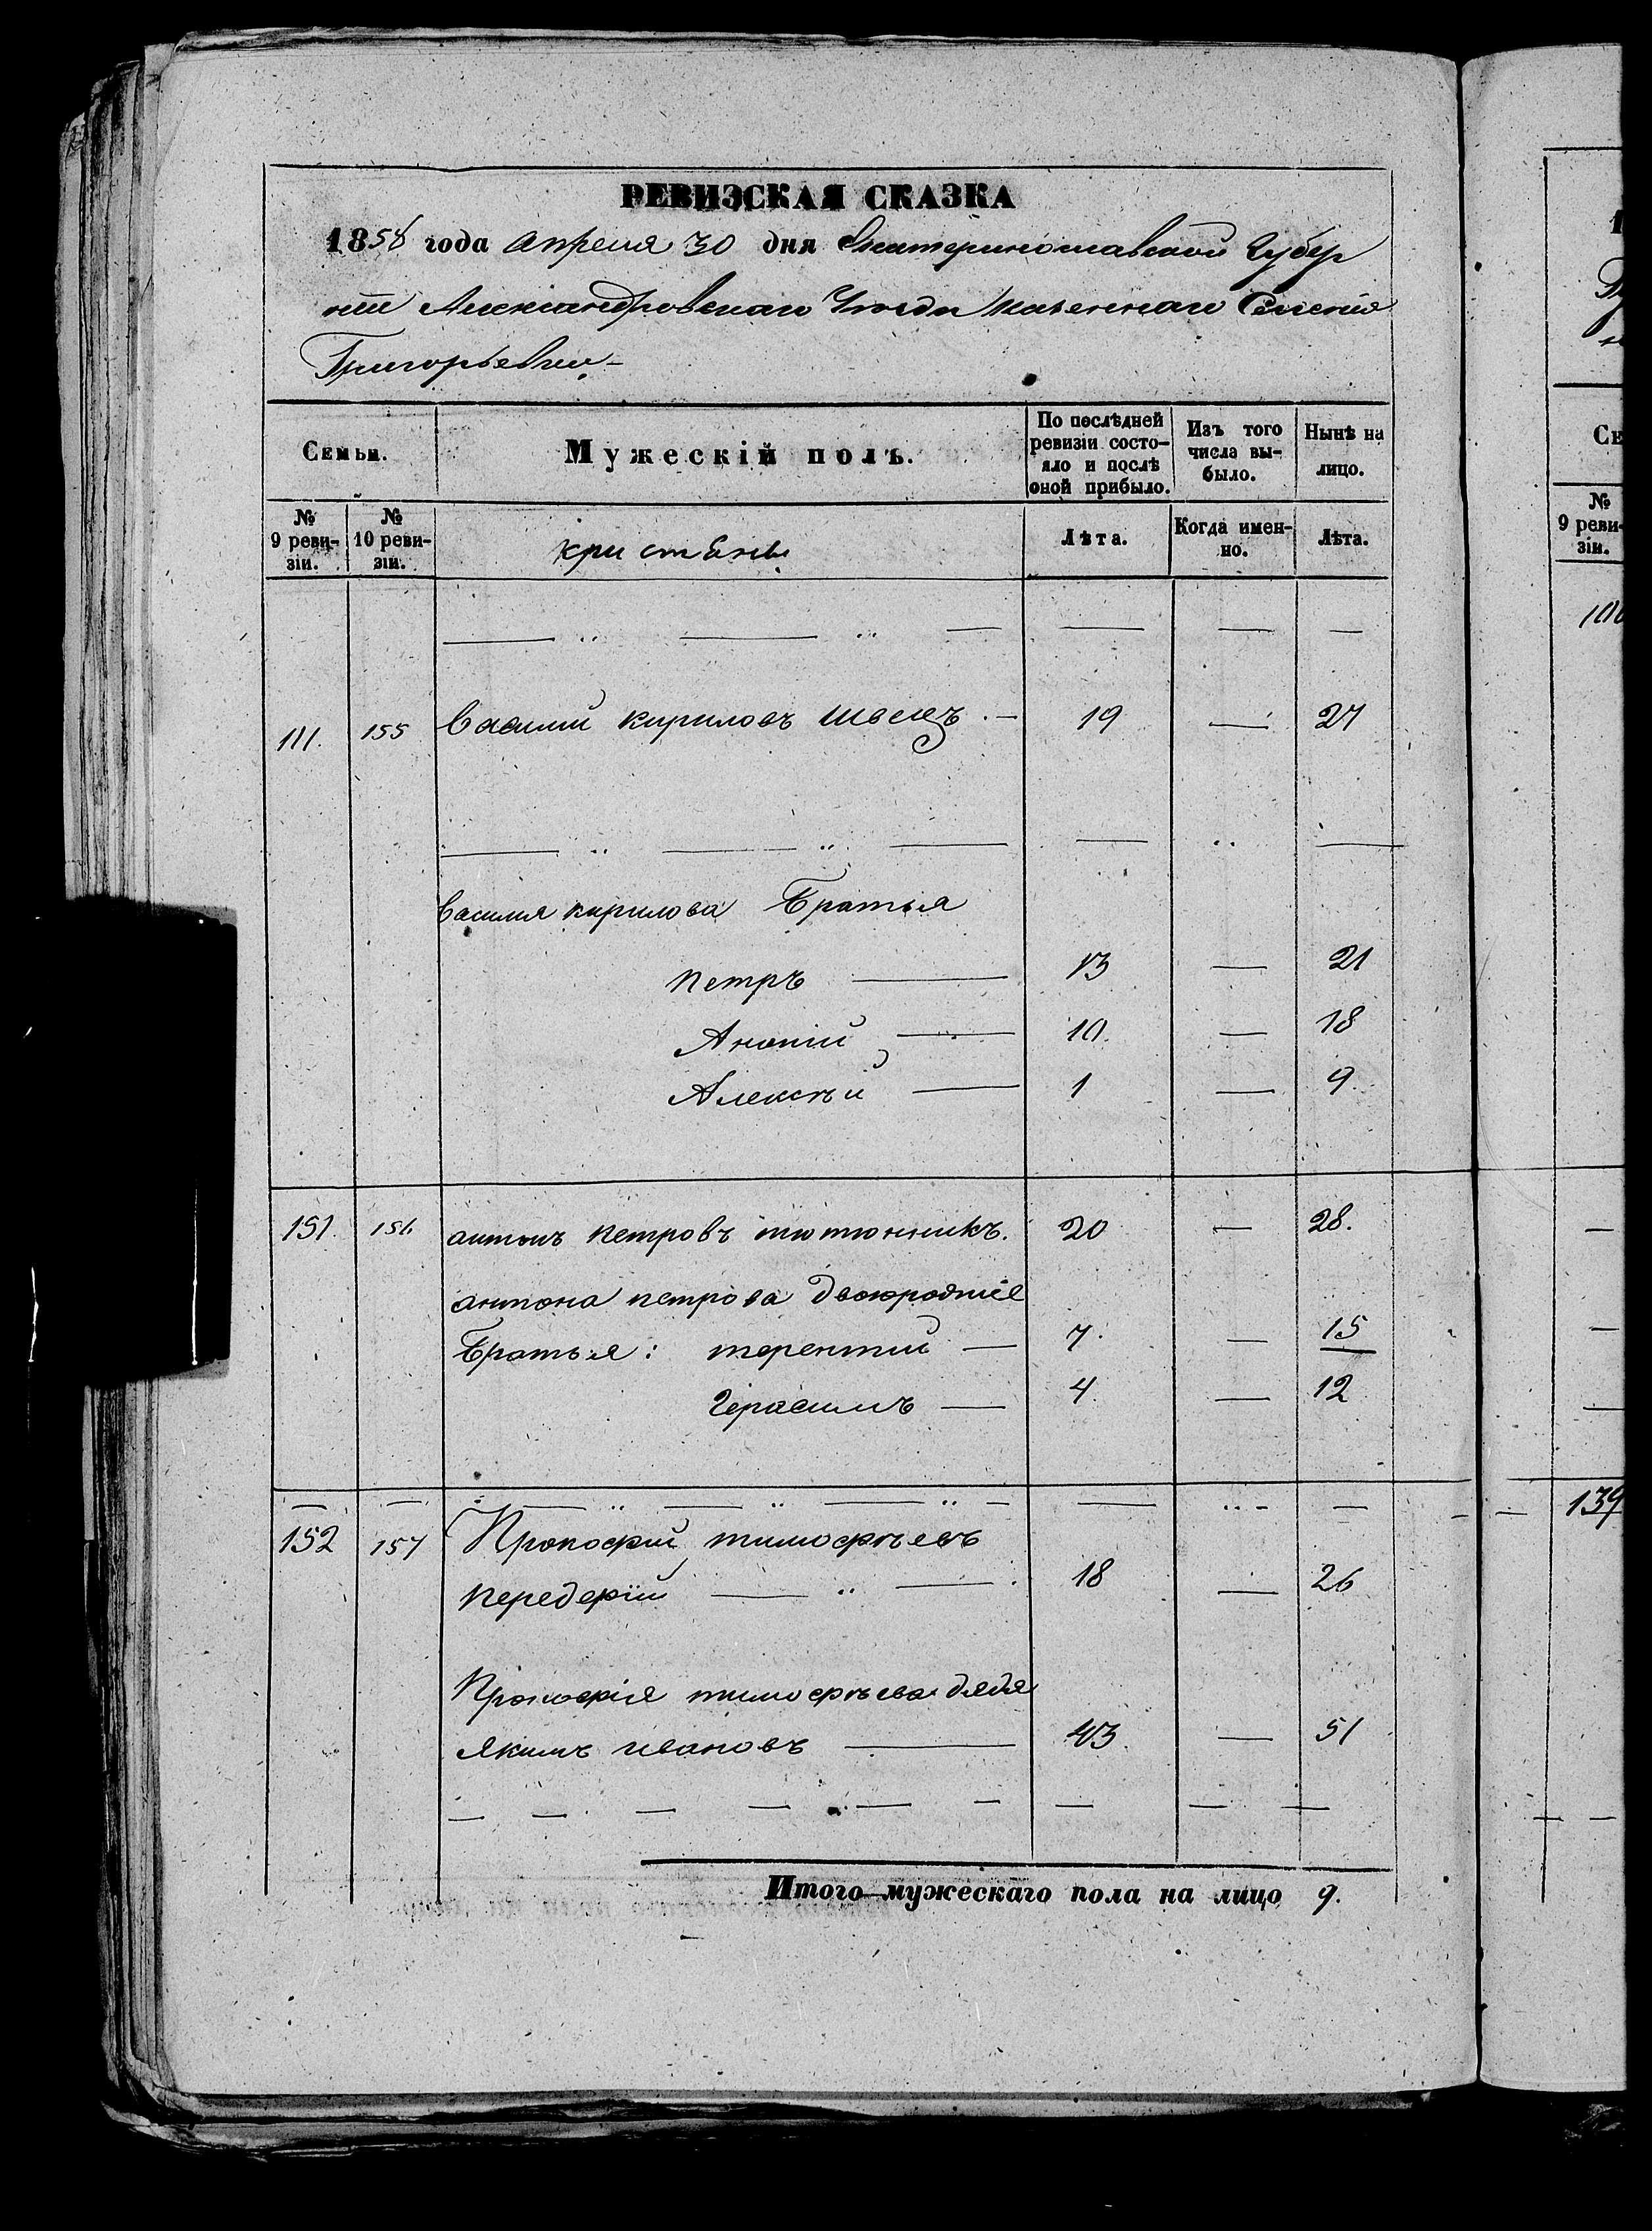 РЕВИЗСКАЯ СКАЗКА
1858 года Апреля 30 дня Екатеринославской Губер
нии Александровскаго Уезда Казеннаго Селенія
Григорьевки
Семьи.
Мужескій полъ.
По послѣдней ревизіи состо-яло и послѣ оной прибыло.
Изъ того числа вы-было.
Нынѣ на лицо.
№ 9 реви-зіи.
№ 10 реви-зіи.
Лѣта.
Когда имен-но.
Лѣта.
111. 155 Василий Кириловъ Швецъ. — 19 — 27
Василия Кирилова Братья
Петръ — 13 — 21
Ананій — 10. — 18
Алексѣй — 1 — 9.
151. 156 Антонъ Петровъ Тютюнникъ. 20 — 28.
Антона Петрова двоюродние
Братья: Терентий — 7. — 15
Герасимъ — 4. — 12
152 157 Прокофий Тимофѣевъ
Передерій — 18 — 26
Прокофія Тимофѣева дядя
Якимъ Ивановъ — 43. — 51
Итого мужескаго пола на лицо 9.
Се
№ 9 реви-зіи.
139